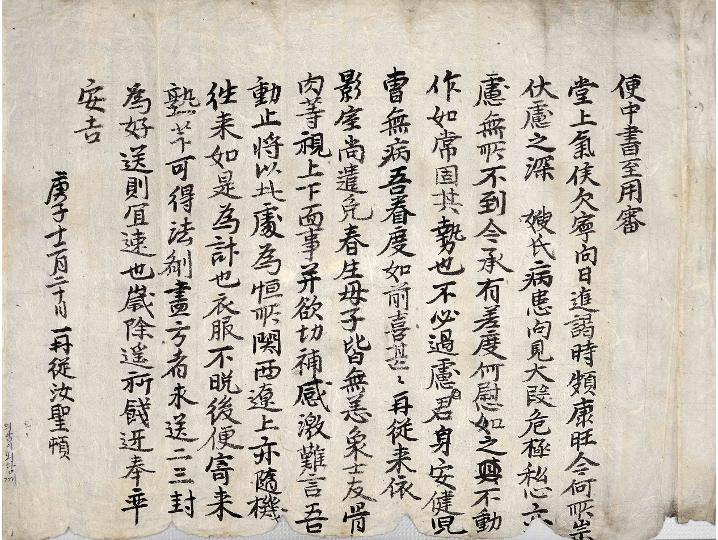 便中書至用審
堂上氣候欠寧向日進謁時頗康旺今何所祟
伏慮之深 嫂氏病患向見大段危極私心亦
慮無所不到今承有差度何慰如之興不動
作如常固其勢也不必過慮君身安健兒
曺無病吾着度如前喜甚〻再從來依
影室尚遣免春生母子皆無恙象士友骨
肉等視上下面事并欲切補感激難言吾
動止將以此處為恒所関西遼上亦隨機
徃来如是為計也衣服不晩後便寄来
塾 可得法制盡方者求送二三封
為好送則宜速也歲除遙祈餞迓奉平
安吉
庚子十二月二十 日 再從汝聖頓